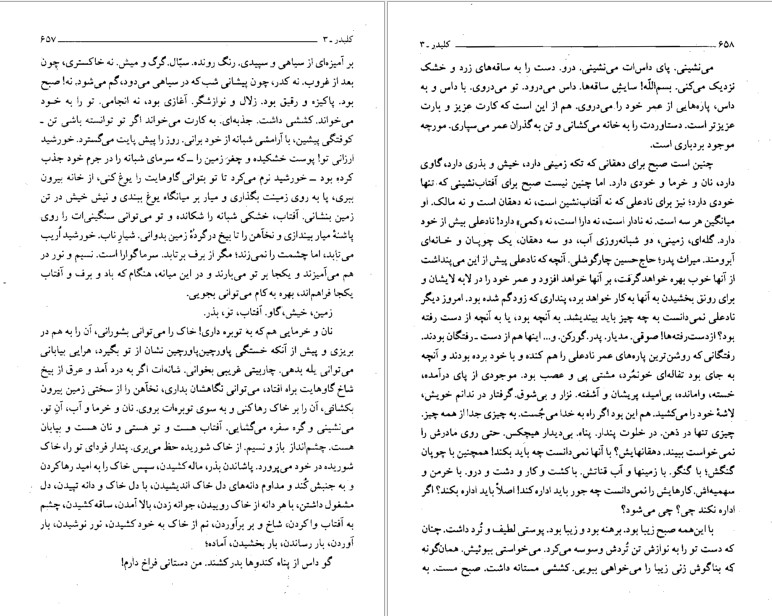 کلیدر ـ ۳ ۶۵۷
بر آمیزه‌ای از سیاهی و سپیدی. رنگ رونده. سیّال. گرگ و میش. نه خاکستری، چون
بعد از غروب. نه کدر، چون پیشانی شب که در سیاهی می‌دود، گم می‌شود. نه! صبح
بود. پاکیزه و رقیق بود. زلال و نوازشگر. آغازی بود، نه انجامی. تو را به خود
می‌خواند. کششی داشت. جذبه‌ای. به کارت می‌خواند اگر تو توانسته باشی تن ـ
کوفتگی پیشین، با آرامشی شبانه از خود برانی. روز را پیش پایت می‌گسترد. خورشید
ارزانی تو! پوست خشکیده و چغر زمین را ــ که سرمای شبانه را در جرم خود جذب
کرده بود ــ خورشید نرم می‌کرد تا تو بتوانی گاوهایت را یوغ کنی، از خانه بیرون
ببری، پا به روی زمینت بگذاری و میار بر میانگاه یوغ ببندی و نیش خیش در تن
زمین بنشانی. آفتاب، خشکی شبانه را شکانده و تو می‌توانی سنگینی‌ات را روی
پاشنهٔ میار بیندازی و نخآهن را تا بیخ در گردهٔ زمین بدوانی. شیار ناب. خورشید اُریب
می‌تابد، اما چشمت را نمی‌زند؛ مگر از برف برتابد. سرما گوارا است. نسیم و نور در
هم می‌آمیزند و یکجا بر تو می‌بارند و در این میانه، هنگام که باد و برف و آفتاب
یکجا فراهم‌اند، بهره به کام می‌توانی بجویی.
زمین، خیش، گاو. آفتاب، تو، بذر.
نان و خرمایی هم که به توبره داری! خاک را می‌توانی بشورانی، آن را به هم در
بریزی و پیش از آنکه خستگی پاورچین پاورچین نشان از تو بگیرد، هرایی بیابانی
می‌توانی یله بدهی. چاربیتی غریبی بخوانی. شانه‌ات اگر به درد آمد و عرق از بیخ
شاخ گاوهایت براه افتاد، می‌توانی نگاهشان بداری، نخآهن را از سختی زمین بیرون
بکشانی، آن را بر خاک رها کنی و به سوی توبره‌ات بروی. نان و خرما و آب، آنِ تو.
می‌نشینی و گره سفره می‌گشایی. آفتاب هست و تو هستی و نان هست و بیابان
هست. چشم‌انداز باز و نسیم. از خاک شوریده حظ می‌بری. پندار فردای تو را، خاک
شوریده در خود می‌پرورد. پاشاندن بذر، ماله کشیدن، سپس خاک را به امید رها کردن
و به جنبش کُند و مداوم دانه‌های دل خاک اندیشیدن، با دل خاک و دانه تپیدن، دل
مشغول داشتن، با هر دانه از خاک روییدن، جوانه زدن، بالا آمدن، ساقه کشیدن، چشم
به آفتاب وا کردن، شاخ و بر برآوردن، نم از خاک به خود کشیدن، نور نوشیدن، بار
آوردن، بار رساندن، بار بخشیدن، آماده؛
گو داس از پناه کندوها بدر کشند. من دستانی فراخ دارم!
۶۵۸ کلیدر ـ ۳
می‌نشینی. پای داس‌ات می‌نشینی. درو. دست را به ساقه‌های زرد و خشک
نزدیک می‌کنی. بسم‌اللّه! سایش ساقه‌ها. داس می‌درود. تو می‌دروی. با داس و به
داس، پاره‌هایی از عمر خود را می‌دروی. هم از این است که کارت عزیز و بارت
عزیزتر است. دستاوردت را به خانه می‌کشانی و تن به گذران عمر می‌سپاری. مورچه
موجود بردباری است.
چنین است صبح برای دهقانی که تکه زمینی دارد، خیش و بذری دارد، گاوی
دارد، نان و خرما و خودی دارد. اما چنین نیست صبح برای آفتاب‌نشینی که تنها
خودی دارد؛ نیز برای نادعلی که نه آفتاب‌نشین است، نه دهقان است و نه مالک. او
میانگین هر سه است. نه نادار است، نه دارا است، نه «کمی» دارد! نادعلی بیش از خود
دارد. گله‌ای، زمینی، دو شبانه‌روزی آب، دو سه دهقان، یک چوپان و خانه‌ای
آبرومند. میراث پدر؛ حاج حسین چارگوشلی. آنچه که نادعلی پیش از این می‌پنداشت
از آنها خوب بهره خواهد گرفت، بر آنها خواهد افزود و عمر خود را در لابه لایشان و
برای رونق بخشیدن به آنها به کار خواهد برد، پنداری که زود گم شده بود. امروز دیگر
نادعلی نمی‌دانست به چه چیز باید بیندیشد. به آنچه بود، یا به آنچه از دست رفته
بود؟ ازدست‌رفته‌ها! صوقی. مدیار. پدر. گورکن. و... اینها هم از دست ـ رفتگان بودند.
رفتگانی که روشن‌ترین پاره‌های عمر نادعلی را هم کنده و با خود برده بودند و آنچه
به جای بود تفاله‌ای خونمُرد، مشتی پی و عصب بود. موجودی از پای درآمده،
خسته، وامانده، بی‌امید، پریشان و آشفته. نزار و بی‌شوق. گرفتار در ندانم خویش،
لاشهٔ خود را می‌کشید. هم این بود اگر راه به خدا می‌جُست. به چیزی جدا از همه چیز.
چیزی تنها در ذهن. در خلوت پندار. پناه. بی‌دیدار هیچکس. حتی روی مادرش را
نمی‌خواست ببیند. دهقانهایش؟ با آنها نمی‌دانست چه باید بکند! همچنین با چوپان
گنگش؛ با گنگو. با زمینها و آب قناتش. با کشت و کار و دشت و درو. با خرمن و
سهمیه‌اش. کارهایش را نمی‌دانست چه جور باید اداره کند! اصلاً باید اداره بکند؟ اگر
اداره نکند چی؟ چی می‌شود؟
با این‌همه صبح زیبا بود. برهنه بود و زیبا بود. پوستی لطیف و تُرد داشت. چنان
که دست تو را به نوازش تن تُردش وسوسه می‌کرد. می‌خواستی ببوئیش. همان‌گونه
که بناگوش زنی زیبا را می‌خواهی ببویی. کششی مستانه داشت. صبح مست. به